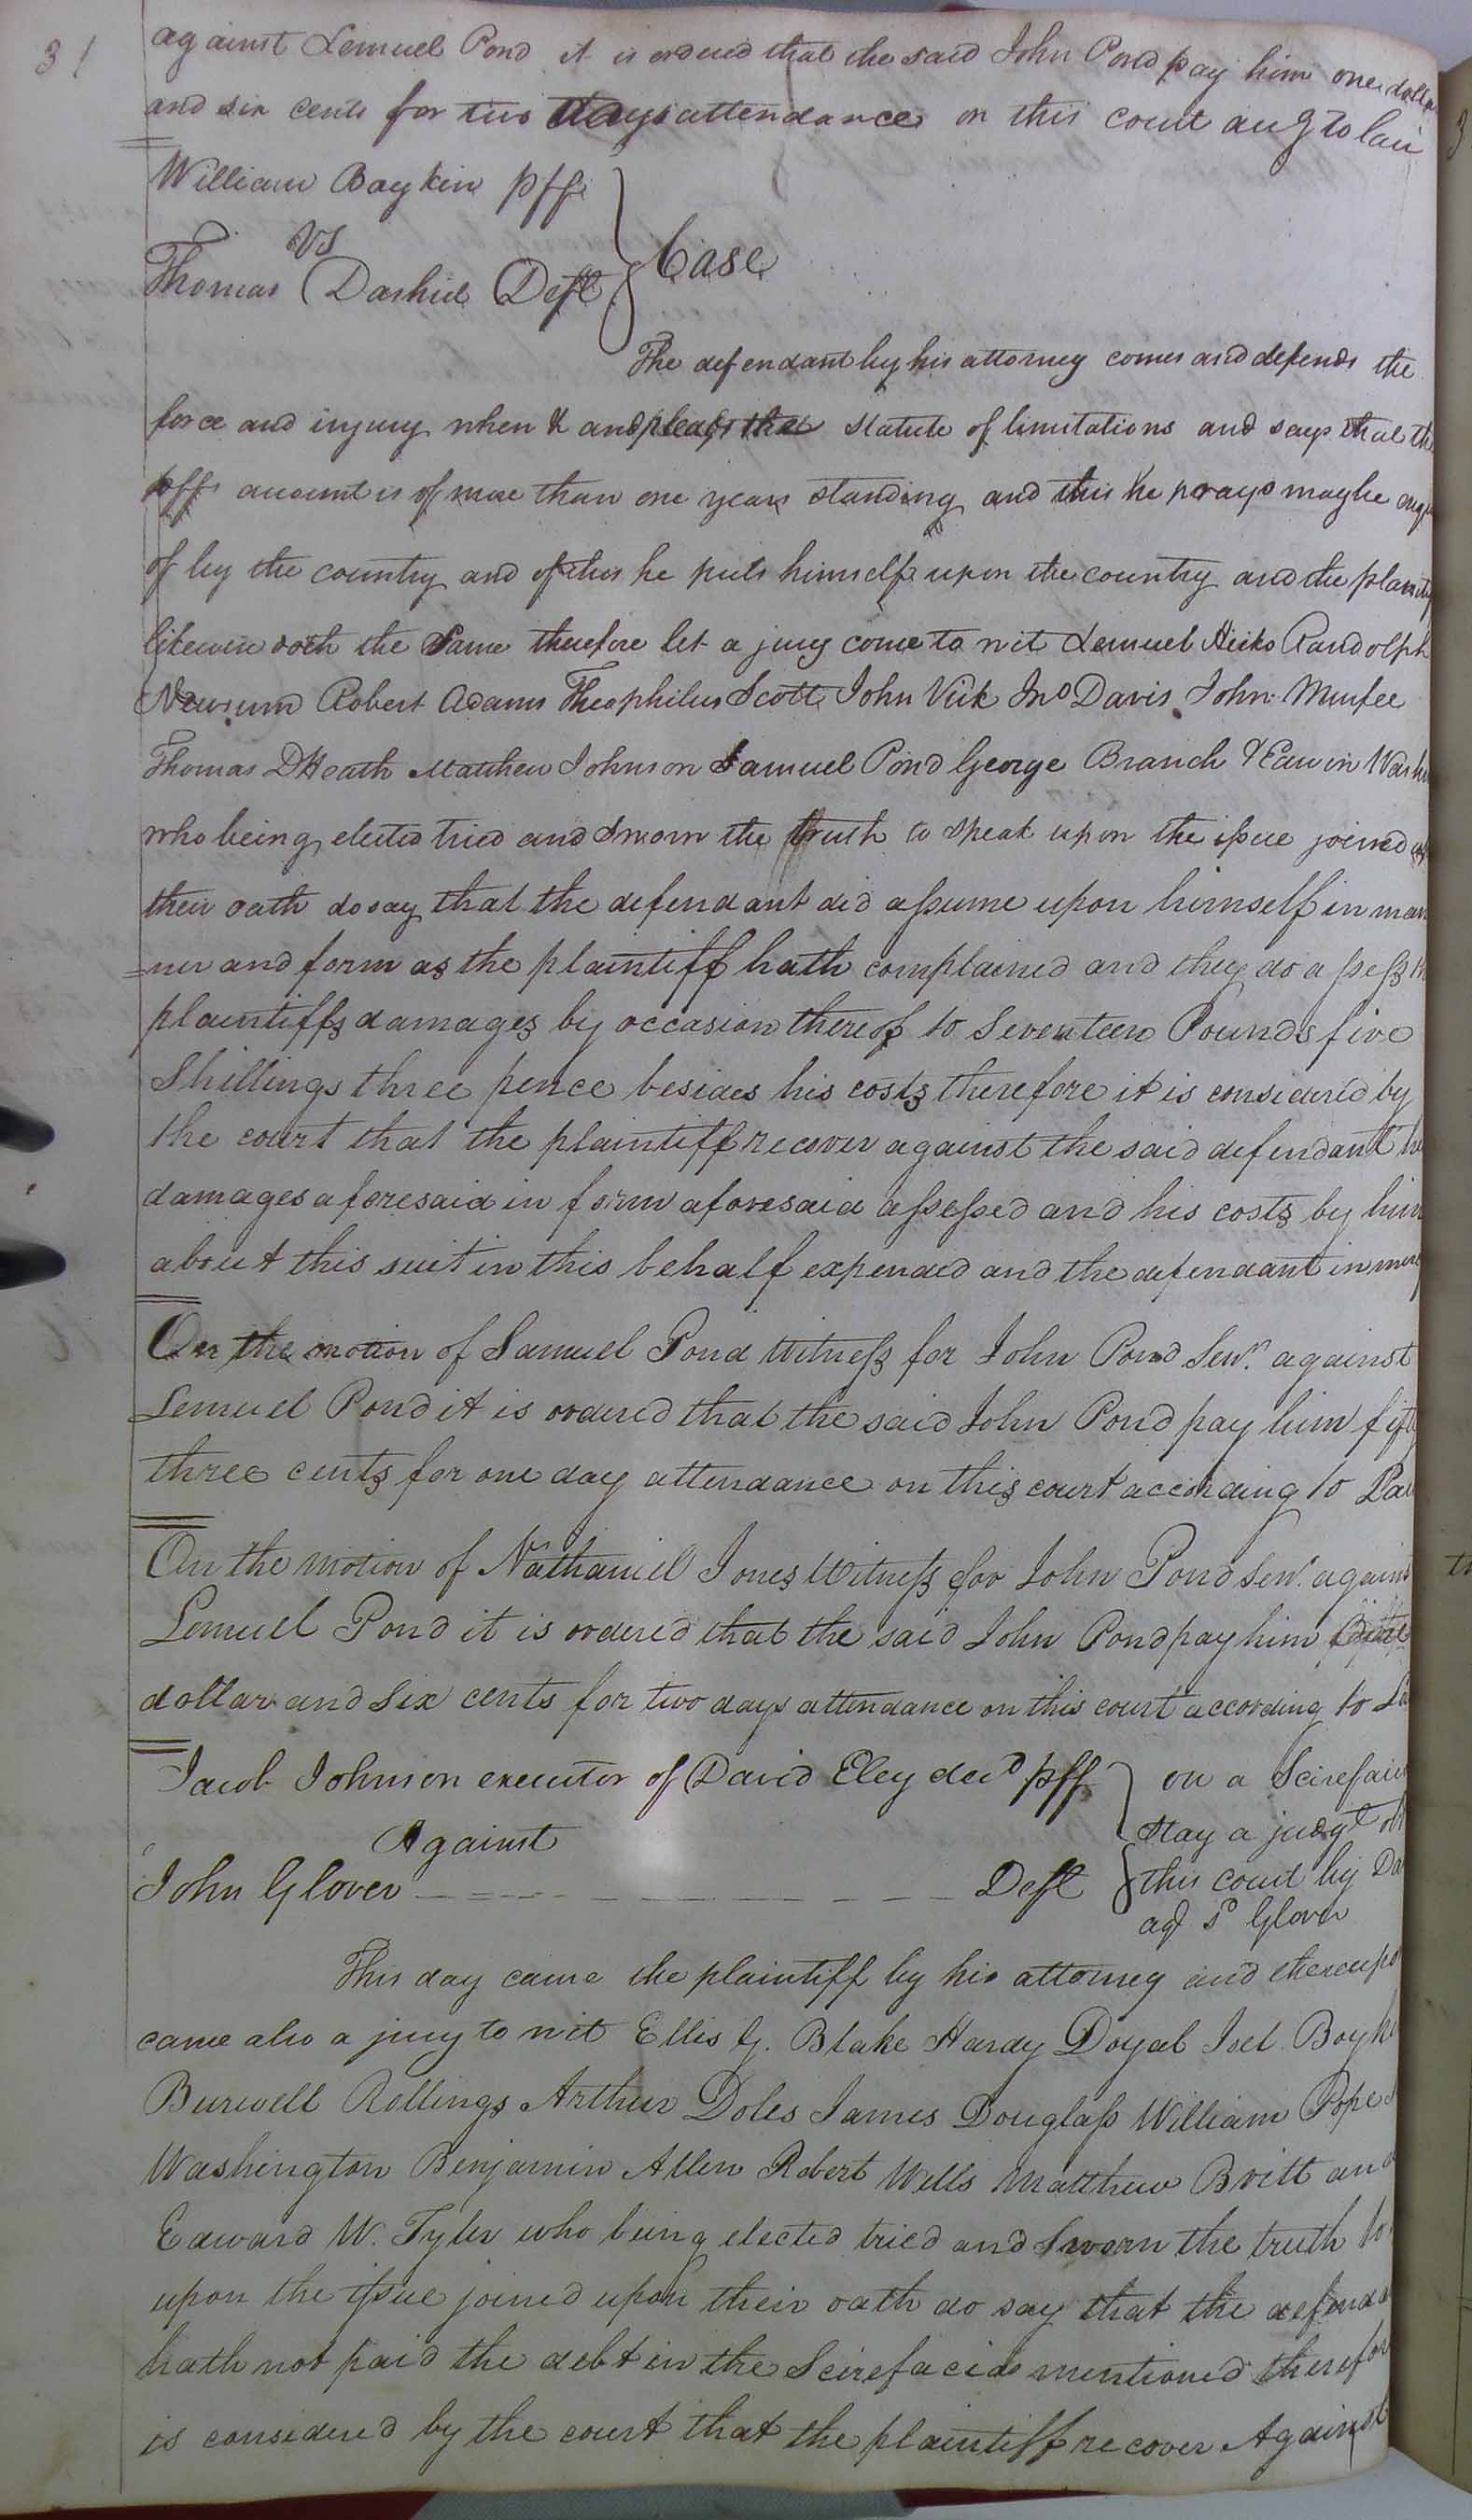 31
against Lemuel Pond it is ordered that the said John Pond pay him one dollar
and six cents for two days attendance on this court accg to law
William Boykin pff
vs
Case
Thomas Dashiel Deft
The defendant by his attorney comes and defends the
force and injury when & and pleads the statute of limitations and says that the
pffs account is of more than one years standing and this he prays may be enq
of by the country and of this he puts himself upon the country and the plaintiff
likewise doth the same therefore let a jury come to wit Lemuel Hicks Randolph
Newsum Robert Adams Theophilus Scott John Vick Jno Davis John Murfee
Thomas D Heath Matthew Johnson Samuel Pond George Branch & Edwin Wash
who being elected tried and sworn the truth to speak upon the issue joined
their oath do say that the defendant did assume upon himself in man
ner and form as the plaintiff hath complained and they do assess
plaintiffs damages by occasion thereof to Seventeen Pounds five
Shillings three pence besides his costs therefore it is considered by
the court that the plaintiff recover against the said defendant
damages aforesaid in form aforesaid assessed and his costs by him
about this suit in this behalf expended and the defendant in mercy
On the motion of Samuel Pond Witness for John Pond Senr. against
Lemuel Pond it is ordered that the said John Pond pay him fifty
three cents for one day attendance on this court according to Law
On the motion of Nathaniel Jones Witness for John Pond Senr. against
Lemuel Pond it is ordered that the said John Pond pay him
dollar and six cents for two days attendance on this court according to La
Jacob Johnson executor of David Eley decd pff
on a Scirefacias
Against
stay a judgt
John Glover Deft
this court by Da
agt sd Glover
This day came the plaintiff by his attorney and thereupo
came also a jury to wit Ellis G. Blake Hardy Doyal Joel Boyk
Burwell Rollings Arthur Doles James Douglass William Pope
Washington Benjamin Allen Robert Wells Matthew Britt and
Edward W. Tyler who being elected tried and sworn the truth to
upon the issue joined upon their oath do say that the defenda
hath not paid the debt in the Scirefacias mentioned therefor
is considered by the court that the plaintiff recover Against